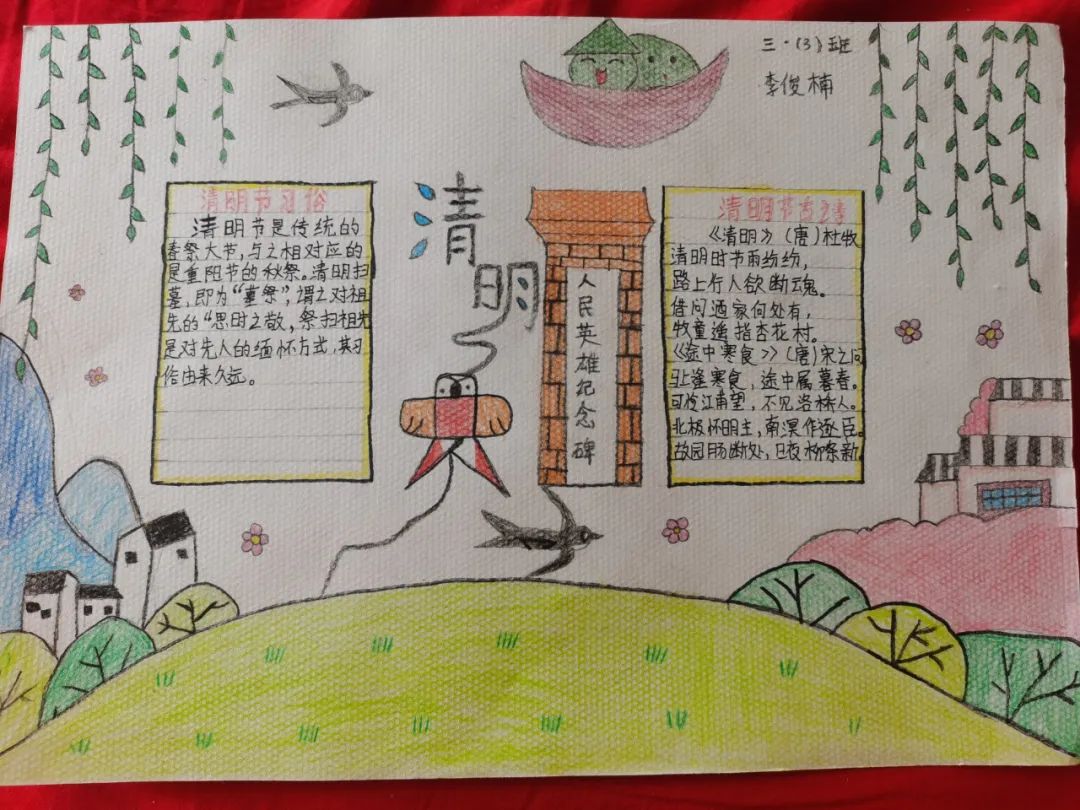 三·(3)班
李俊楠
清明节习俗
清明节是传统的
春祭大节,与之相对应的
是重阳节的秋祭。清明扫
墓,即为“墓祭”,谓之对祖
先的“思时之敬,祭扫祖先
是对先人的缅怀方式,其习
俗由来久远。
清明
人民英雄纪念碑
清明节古诗
《清明》(唐)杜牧
清明时节雨纷纷,
路上行人欲断魂。
借问酒家何处有,
牧童遥指杏花村。
《途中寒食》(唐)宋之问
马上逢寒食,途中属暮春。
可怜江南望,不见洛桥人。
北极怀明主,南溟作逐臣。
故园肠断处,日夜柳条新。